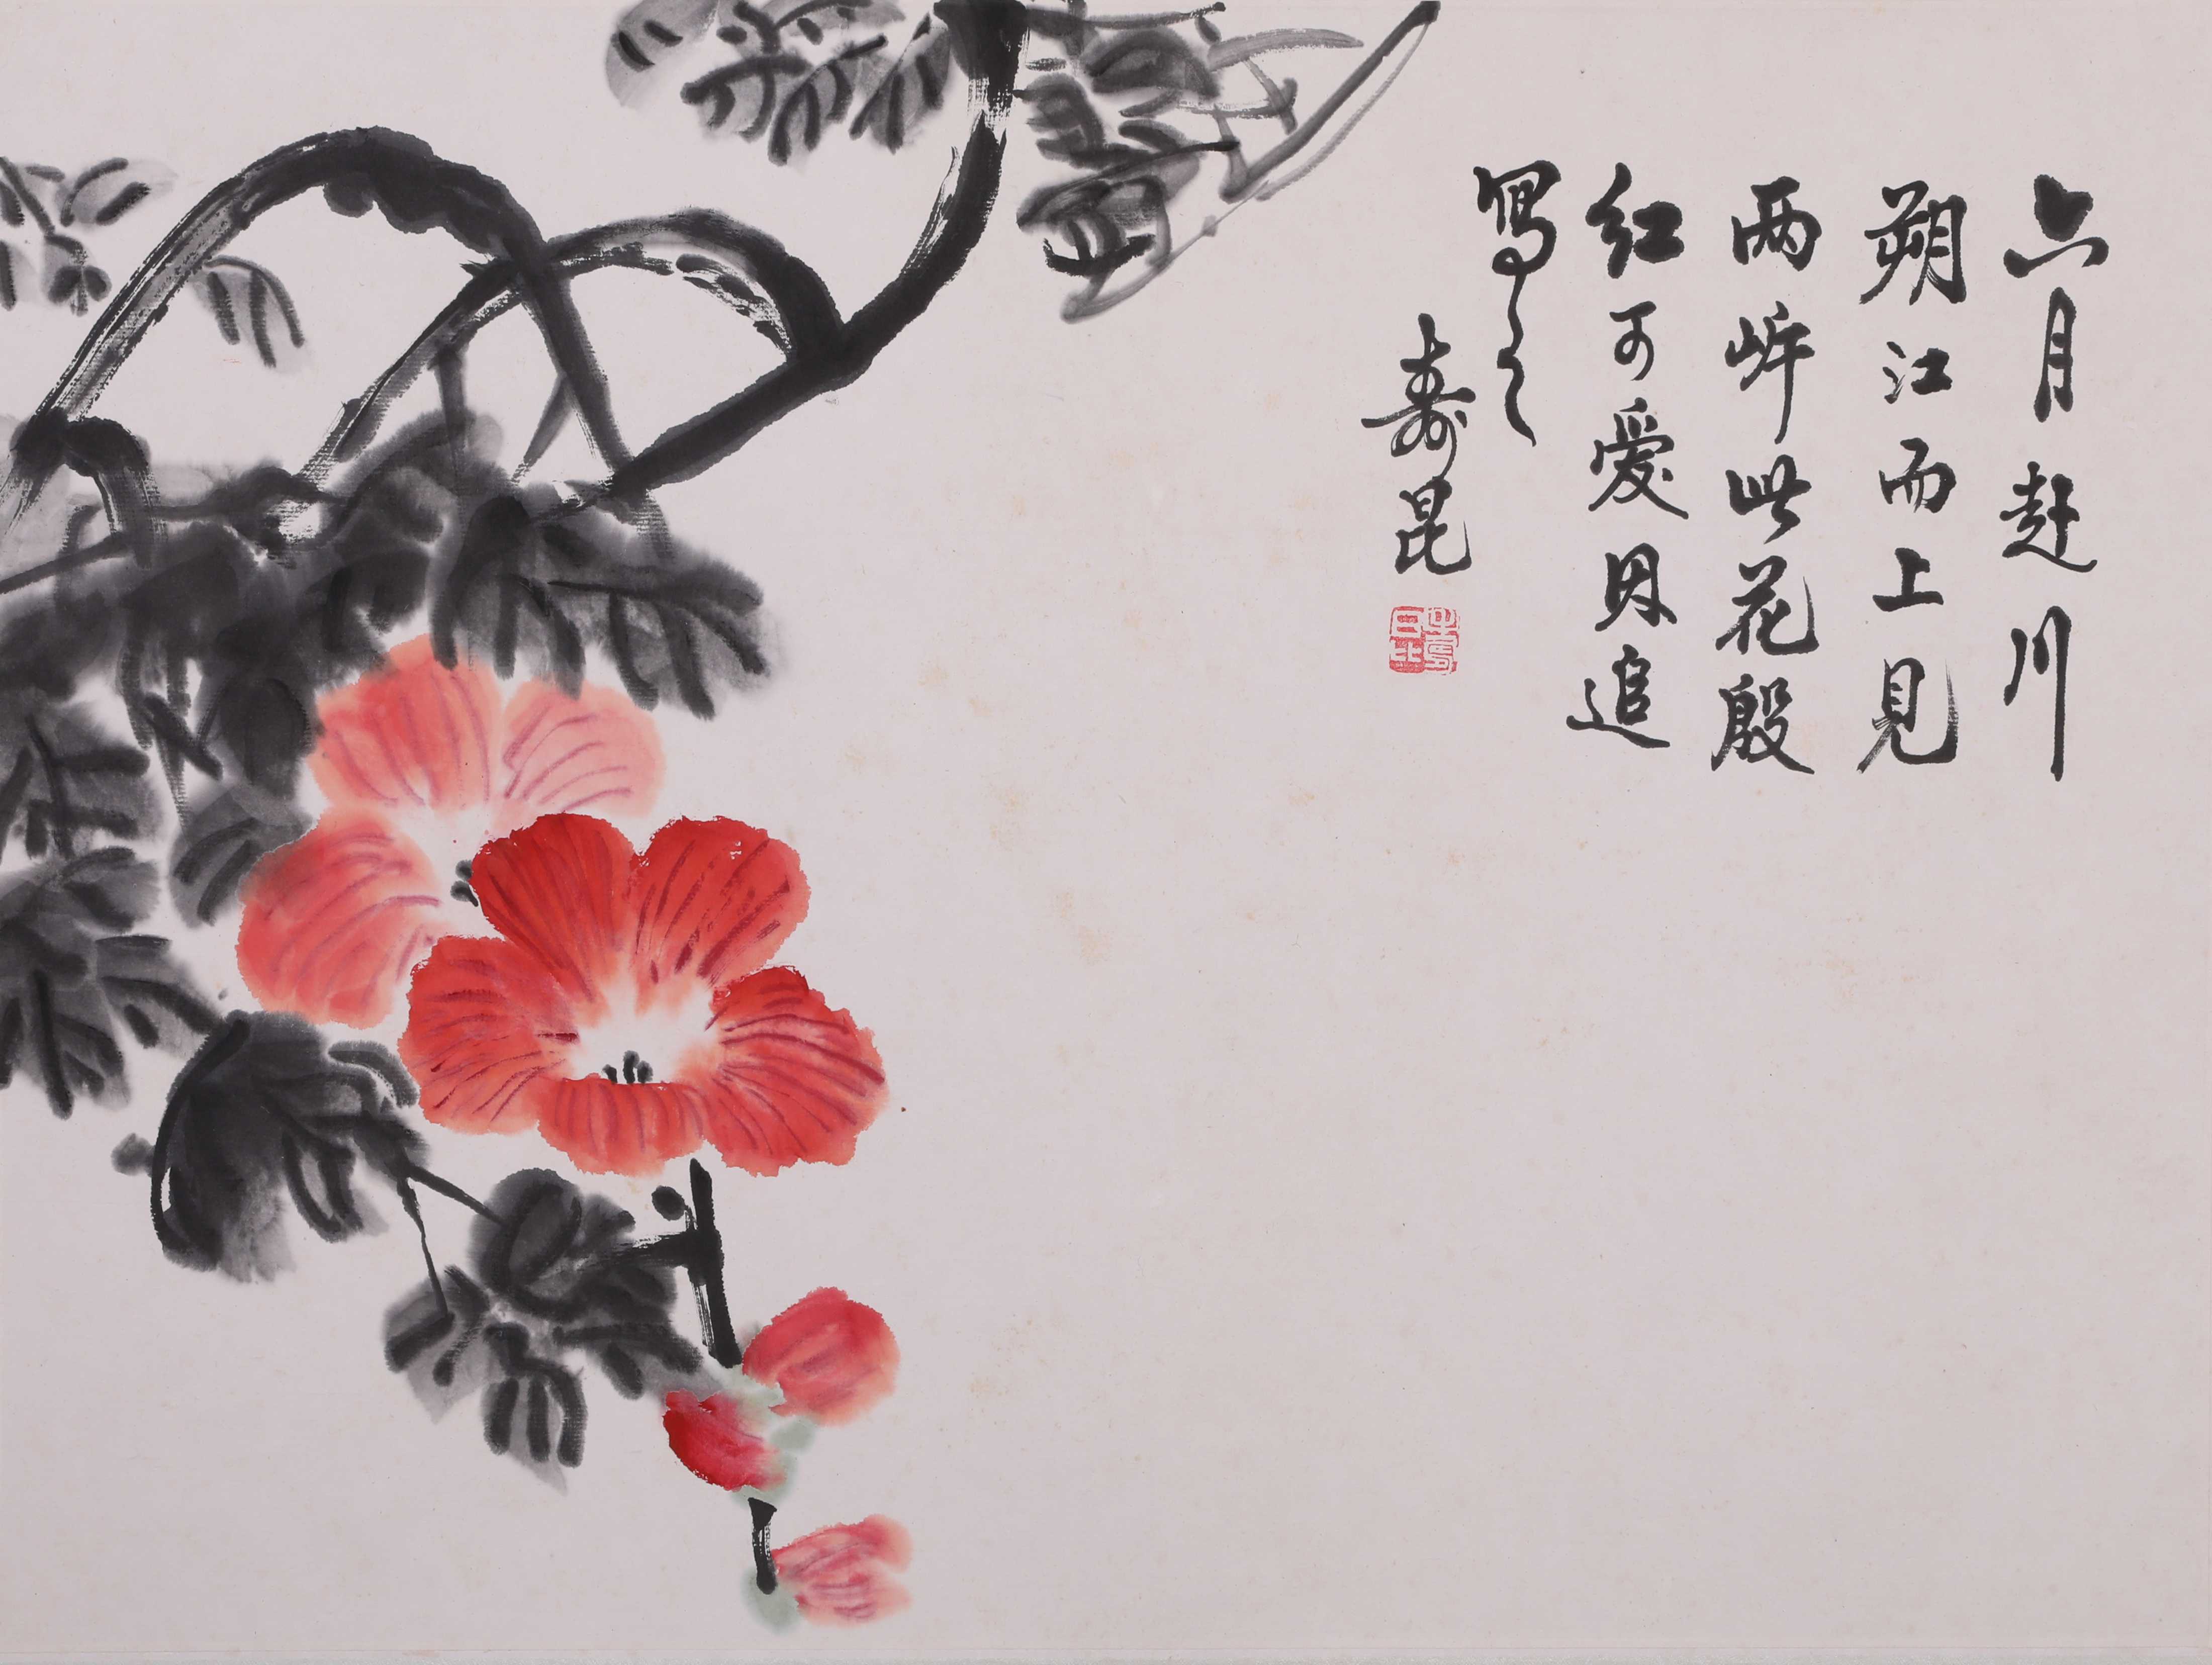 六月赴川
朔江而上見
两岸此花殷
紅可愛因追
寫之
壽昆
壽昆